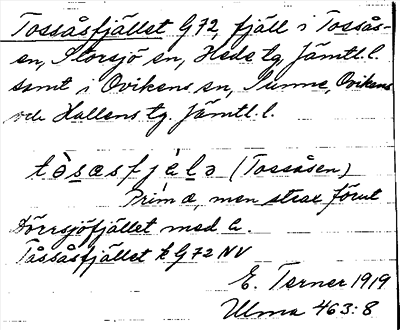 Tossåsfjället G72, fjäll i Tossås-
en, Storsjö sn, Hede tg, Jämtl. l.
samt i Ovikens sn, Sunne, Ovikens
och Hallens tg. Jämtl. l.
tò̀sasfjælə (Tossåsen)
Prima, men strax förut
Dörrsjöfjället med a.
Tåssåsfjället k G72 NV
E. Terner 1919
Ulma 463:8